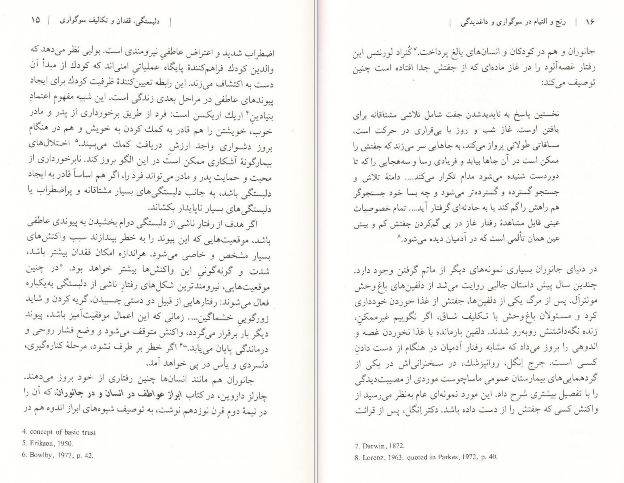 دلبستگی، فقدان و تکالیف سوگواری | ۱۵
اضطراب شدید و اعتراض عاطفی نیرومندی است. بولبی نظر می‌دهد که
والدین کودک فراهم‌کنندهٔ پایگاه عملیاتی امنی‌اند که کودک از مبدأ آن
دست به اکتشاف می‌زند. این رابطه تعیین‌کنندهٔ ظرفیت کودک برای ایجاد
پیوندهای عاطفی در مراحل بعدی زندگی است. این شبیه مفهوم اعتمادِ
بنیادین۴ اریک اریکسن است: فرد از طریق برخورداری از پدر و مادر
خوب، خویشتن را هم قادر به کمک کردن به خویش و هم در هنگام
بروز دشواری واجد ارزش دریافت کمک می‌بیند.۵ اختلال‌های
بیمارگونهٔ آشکاری ممکن است در این الگو بروز کند. نابرخورداری از
محبت و حمایت پدر و مادر می‌تواند فرد را، اگر هم اساساً قادر به ایجاد
دلبستگی باشد، به جانب دلبستگی‌های بسیار مشتاقانه و پراضطراب یا
دلبستگی‌های بسیار ناپایدار بکشاند.
اگر هدف از رفتار ناشی از دلبستگی دوام بخشیدن به پیوندی عاطفی
باشد، موقعیت‌هایی که این پیوند را به خطر بیندازند سبب واکنش‌های
بسیار مشخص و خاصی می‌شود. هراندازه امکان فقدان بیشتر باشد،
شدت و گونه‌گونی این واکنش‌ها بیشتر خواهد بود. «در چنین
موقعیت‌هایی، نیرومندترین شکل‌های رفتارِ ناشی از دلبستگی به‌یکباره
فعال می‌شوند: رفتارهایی از قبیل دو دستی چسبیدن، گریه کردن و شاید
زورگوییِ خشماگین... زمانی که این اعمال موفقیت‌آمیز باشد، پیوند
دیگر بار برقرار می‌گردد، واکنش متوقف می‌شود و وضع فشار روحی و
درماندگی پایان می‌یابد.»۶ اگر خطر بر طرف نشود، مرحلهٔ کناره‌گیری،
دلسردی و یأس در پی خواهد آمد.
جانوران هم مانند انسان‌ها چنین رفتاری از خود بروز می‌دهند.
چارلز داروین، در کتاب ابراز عواطف در انسان و در جانوران، که آن را
در نیمهٔ دوم قرن نوزدهم نوشت، به توصیف شیوه‌های ابراز اندوه هم در
4. concept of basic trust
5. Erikson, 1950.
6. Bowlby, 1977, p. 42.
۱۶ | رنج و التیام در سوگواری و داغدیدگی
جانوران و هم در کودکان و انسان‌های بالغ پرداخت.۷ کُنراد لورنتس این
رفتار غصه‌آلود را در غاز ماده‌ای که از جفتش جدا افتاده است چنین
توصیف می‌کند:
نخستین پاسخ به ناپدیدشدن جفت شامل تلاشی مشتاقانه برای
یافتن اوست. غاز شب و روز با بی‌قراری در حرکت است،
مسافاتی طولانی پرواز می‌کند، به جاهایی سر می‌زند که جفتش را
ممکن است در آن جاها بیابد و فریادی رسا و سه‌هجایی را که تا
دوردست شنیده می‌شود مدام تکرار می‌کند.... دامنهٔ تلاش و
جستجو گسترده و گسترده‌تر می‌شود و چه بسا خود جستجوگر
هم راهش را گم کند یا به حادثه‌ای گرفتار آید.... تمام خصوصیات
عینی قابل مشاهدهٔ رفتار غاز در پی گم‌کردن جفتش کم و بیش
عین همان تألمی است که در آدمیان دیده می‌شود.۸
در دنیای جانوران بسیاری نمونه‌های دیگر از ماتم گرفتن وجود دارد.
چندین سال پیش داستان جالبی روایت می‌شد از دلفین‌های باغ‌وحش
مونترآل. پس از مرگ یکی از دلفین‌ها، جفتش از غذا خوردن خودداری
کرد و مسئولان باغ‌وحش با تکلیف شاق، اگر نگوییم غیرممکنِ،
زنده نگه‌داشتنش روبه‌رو شدند. دلفین بازمانده با غذا نخوردن غصه و
اندوهی را بروز می‌داد که مشابه رفتار آدمیان در هنگام از دست دادن
کسی است. جرج اِنگل، روانپزشک، در سخنرانی‌اش در یکی از
گردهمایی‌های بیمارستان عمومی ماساچوست موردی از مصیبت‌دیدگی
را با تفصیل بیشتری شرح داد. این مورد نمونه‌ای عام به‌نظر می‌رسید از
واکنش کسی که جفتش را از دست داده باشد. دکتر اِنگل، پس از قرائت
7. Darwin, 1872.
8. Lorenz, 1963. quoted in Parkes, 1972, p. 40.